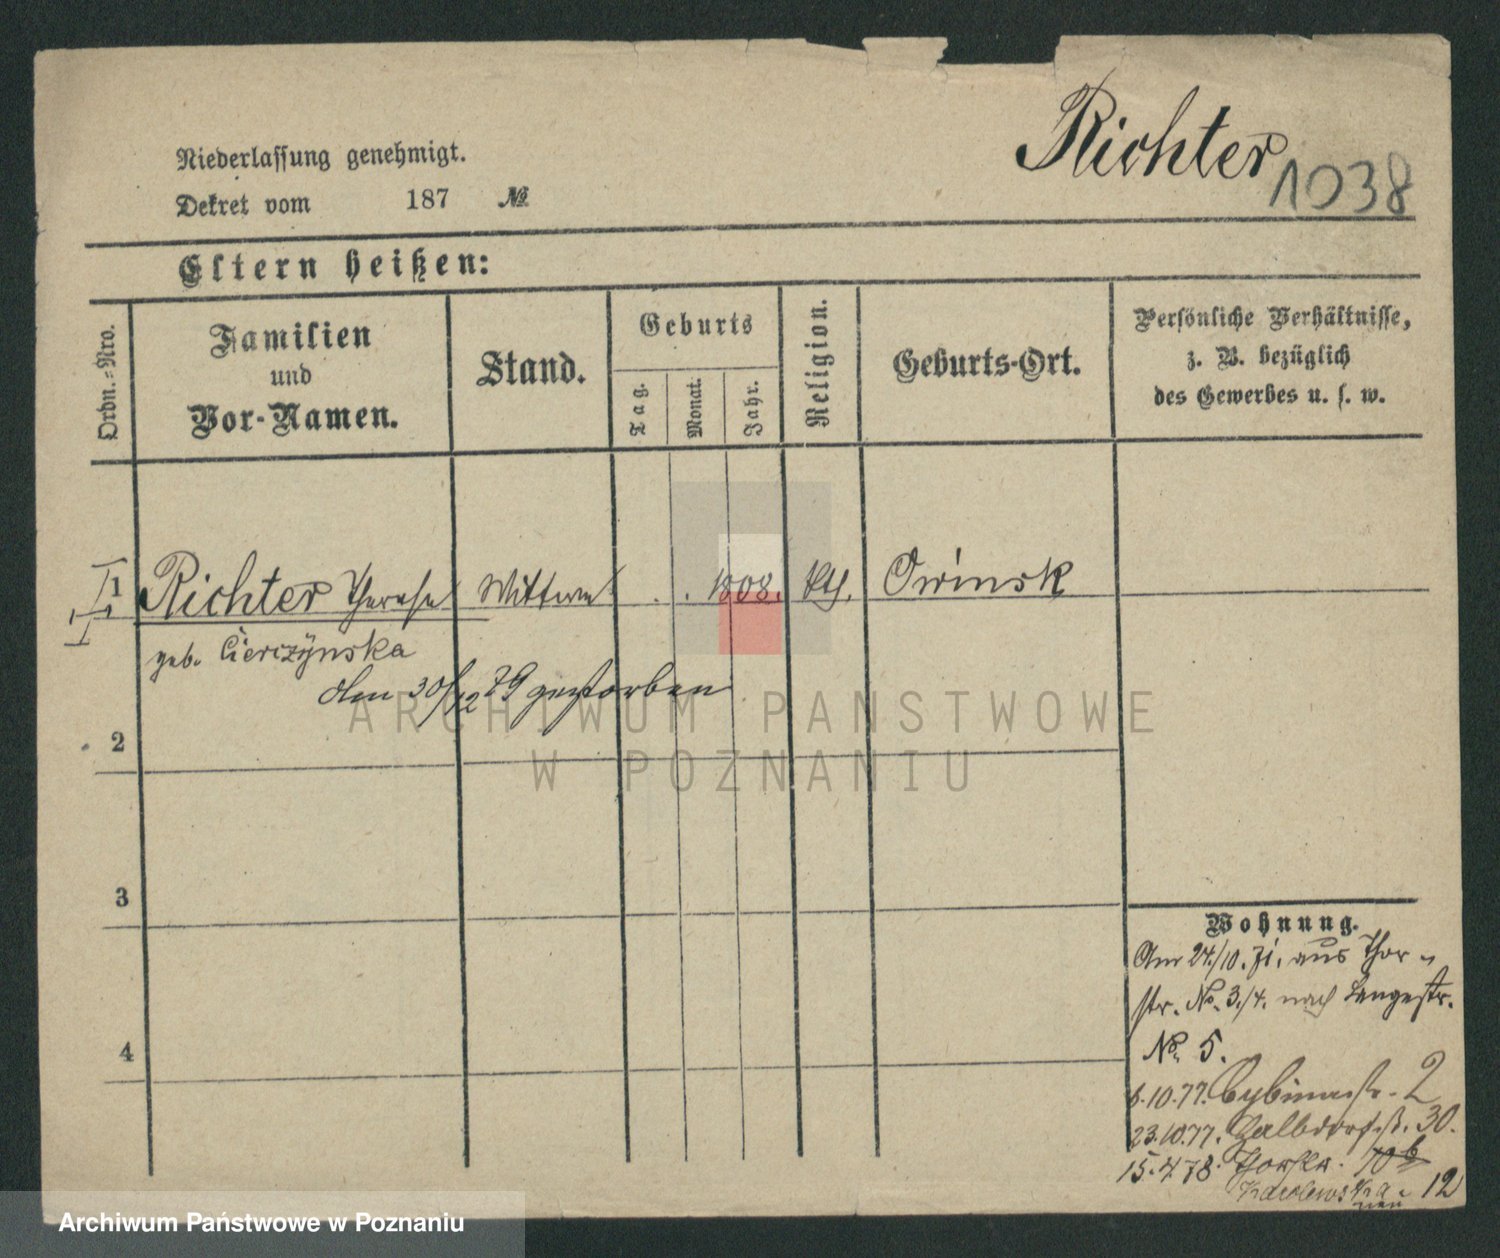 Richter
1038
Niederlassung genehmigt.
Dekret vom 187 №
Eltern heißen:
Ordn.-Nro.
Familien
und
Vor-Namen.
Stand.
Geburts
Tag.
Monat.
Jahr.
Religion.
Geburts-Ort.
Persönliche Verhältnisse,
z. B. bezüglich
des Gewerbes u. s. w.
1 Richter Therese Wittwe . . 1808. kth. Owinsk
geb. Cierczynska
den 30/12 79 gestorben
ARCHIWUM PAŃSTWOWE
W POZNANIU
2
3
4
Wohnung.
Am 24./10. 71. aus Thor-
str. No. 3./4. nach Langestr.
No. 5.
6.10.77. Cybinastr. 2
23.10.77. Halbdorfst. 30.
15.4.78. Thorstr. 10b
12
Archiwum Państwowe w Poznaniu